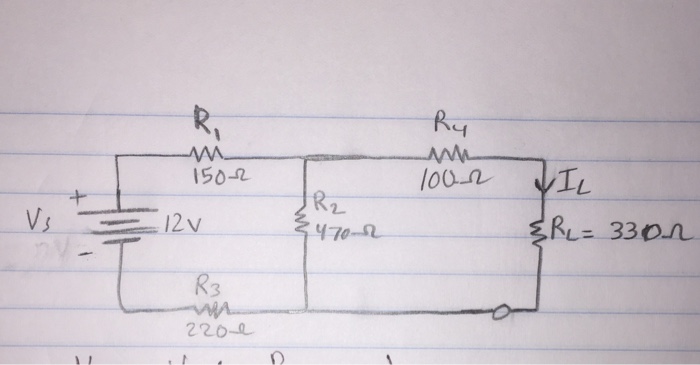 R1
150Ω
R4
100Ω
IL
+
Vs
12V
-
R2
470Ω
RL = 330Ω
R3
220Ω